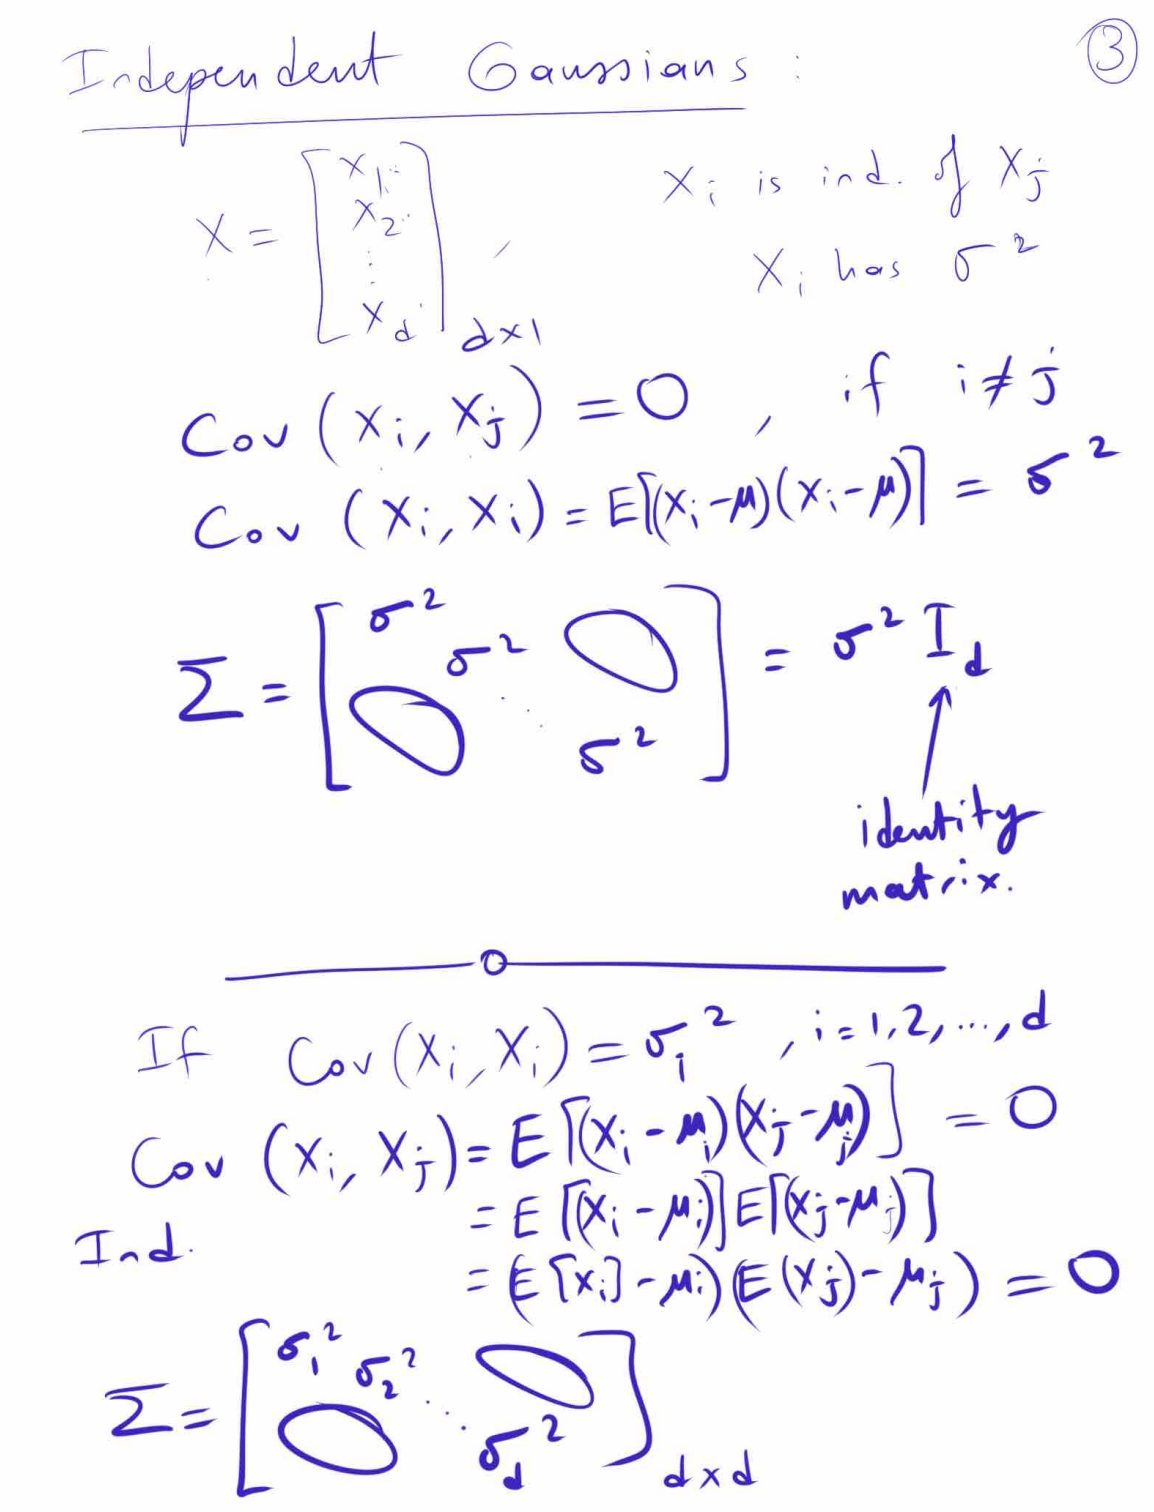 Independent Gaussians : ③
X = [ X₁ X₂ ⋮ X_d ]_{d×1} , X_i is ind. of X_j
X_i has σ²
Cov (X_i, X_j) = 0 , if i ≠ j
Cov (X_i, X_i) = E[(X_i - μ)(X_i - μ)] = σ²
Σ = [ σ² σ² ⋱ σ² 0 0 ] = σ² I_d
identity
matrix.
If Cov(X_i, X_i) = σ_i² , i = 1, 2, ..., d
Cov (X_i, X_j) = E[(X_i - μ_i)(X_j - μ_j)] = 0
= E[(X_i - μ_i)] E[(X_j - μ_j)]
Ind.
= (E[X_i] - μ_i)(E(X_j) - μ_j) = 0
Σ = [ σ₁² σ₂² ⋱ σ_d² 0 0 ]_{d×d}